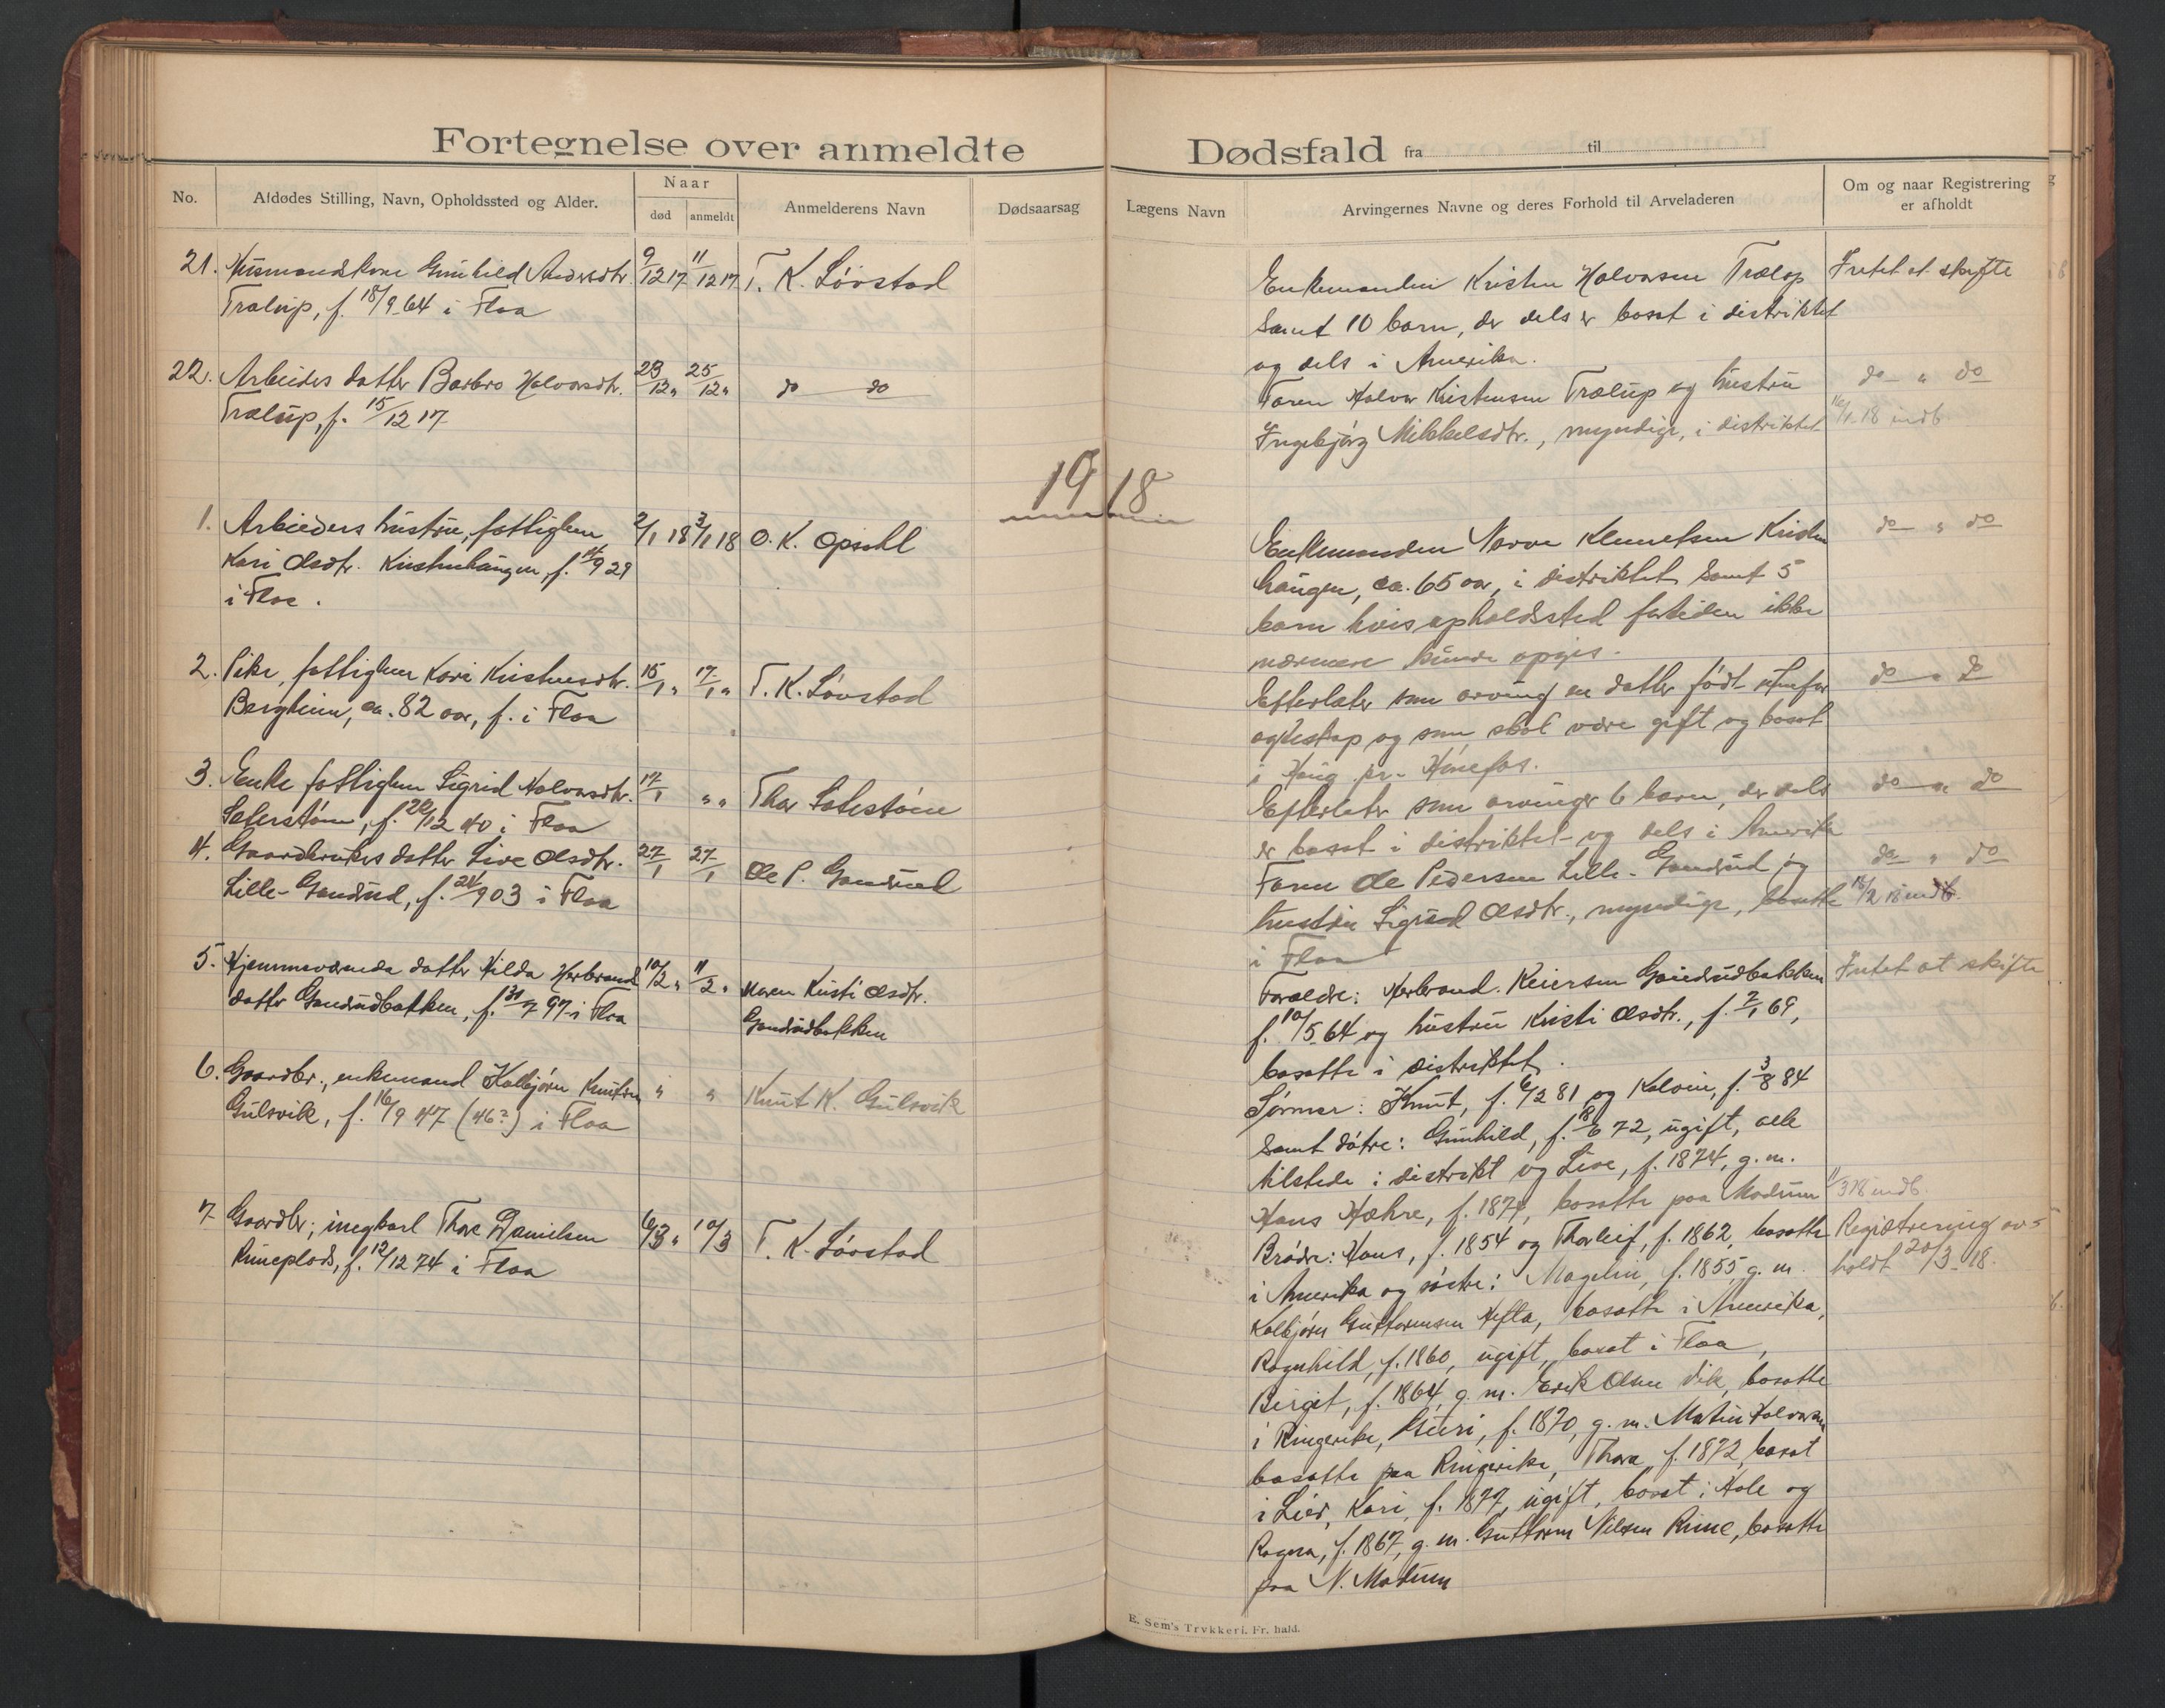 Fortegnelse over anmeldte Dødsfald fra til
No. Afdødes Stilling, Navn, Opholdssted og Alder. Naar død anmeldt Anmelderens Navn Dødsaarsag Lægens Navn Arvingernes Navne og deres Forhold til Arveladeren Om og naar Registrering er afholdt
21. Husmandskone Gunhild Andersdtr. 9/12 17 11/12 17 T. K. Lövstad
Trælup, f. 18/9 64 i Flaa
Enkemanden Kristen Halvorsen Trælup Intet at skifte
samt 10 barn, der dels er bosat i distriktet
og dels i Amerika.
22. Arbeiders datter Barbro Halvorsdtr. 23/12 " 25/12 " do do
Trælup, f. 15/12 17
Faren Halvor Kristensen Trælup og hustru do " do
Ingebjörg Mikkelsdtr., myndige, i distriktet 16/1-18 indb.
1918
1. Arbeiders hustru, fattiglem 2/1 18 3/1 18 O. K. Opsahl
Kari Olsdtr. Kristenhaugen, f. 9 29
i Flaa.
Enkemanden Narve Klemetsen Kristen do " do
haugen, ca. 65 aar, i distriktet samt 5
barn hvis opholdssted fortiden ikke
nærmere kunde opgis.
2. Pike, fattiglem Kari Kristensdtr. 15/1 " 17/1 " T. K. Lövstad
Bergheim, ca. 82 aar, f. i Flaa
Efterlater som arving en datter født utenfor do " do
egteskap og som skal være gift og bosat
i Haug pr. Hönefos.
3. Enke fattiglem Sigrid Halvorsdtr. 17/1 " " Thor Sætestöen
Sæterstöen, f. 20/12 40 i Flaa
Efterlater som arvinger 6 barn, der dels do " do
er bosat i distriktet og dels i Amerika
4. Gaardbrukers datter Live Olsdtr. 27/1 27/1 Ole P. Gandrud
Lille-Gandrud, f. 24/9 03 i Flaa
Faren Ole Pedersen Lille-Gandrud og do " do
hustru Sigrid Olsdtr., myndige, bosatte 18/2 18 indb.
i Flaa
5. Hjemmeværende datter Hilda Herbrands 10/2 " 11/2 " Maren Kristi Olsdtr.
datter Gandrudbakken, f. 31/7 97 i Flaa Gandrudbakken
Forældre: Herbrand Reiersen Gandrudbakken Intet at skifte
f. 10/5 64 og hustru Kristi Olsdtr., f. 7/1 69,
bosatte i distriktet.
6. Gaardbr., enkemand Kolbjörn Knutsen " " Knut K. Gulsvik
Gulsvik, f. 16/9 47 (46?) i Flaa
Sönner: Knut, f. 6/2 81 og Kalvin, f. 3/8 84
samt dötre: Gunhild, f. 18/6 72, ugift, alle
tilstede i distrikt og Live, f. 1874, g. m.
Hans Hæhre, f. 1874, bosatte paa Modum 11/3 18 indb.
7 Gaardbr., ungkarl Thore Danielsen 6/3 " 10/3 T. K. Lövstad
Rimeplads, f. 12/12 74 i Flaa
Brödre: Hans, f. 1854 og Thorleif, f. 1862, bosatte Registrering av-
i Amerika og söstre: Magelin, f. 1855, g. m. holdt 20/3-18.
Kolbjörn Guttormsen Hefta, bosatte i Amerika,
Ragnhild, f. 1860, ugift, bosat i Flaa,
Birgit, f. 1864, g. m. Erik Olsen Vik, bosatte
i Ringerike, Guri, f. 1870, g. m. Martin Halvorsen
bosatte paa Ringerike, Thora f. 1872, bosat
i Lier, Kari, f. 1877, ugift, bosat i Hole og
Ragna, f. 1867, g. m. Guttorm Nilsen Rime, bosatte
paa N. Modum
E. Sem's Trykkeri, Fr. hald.